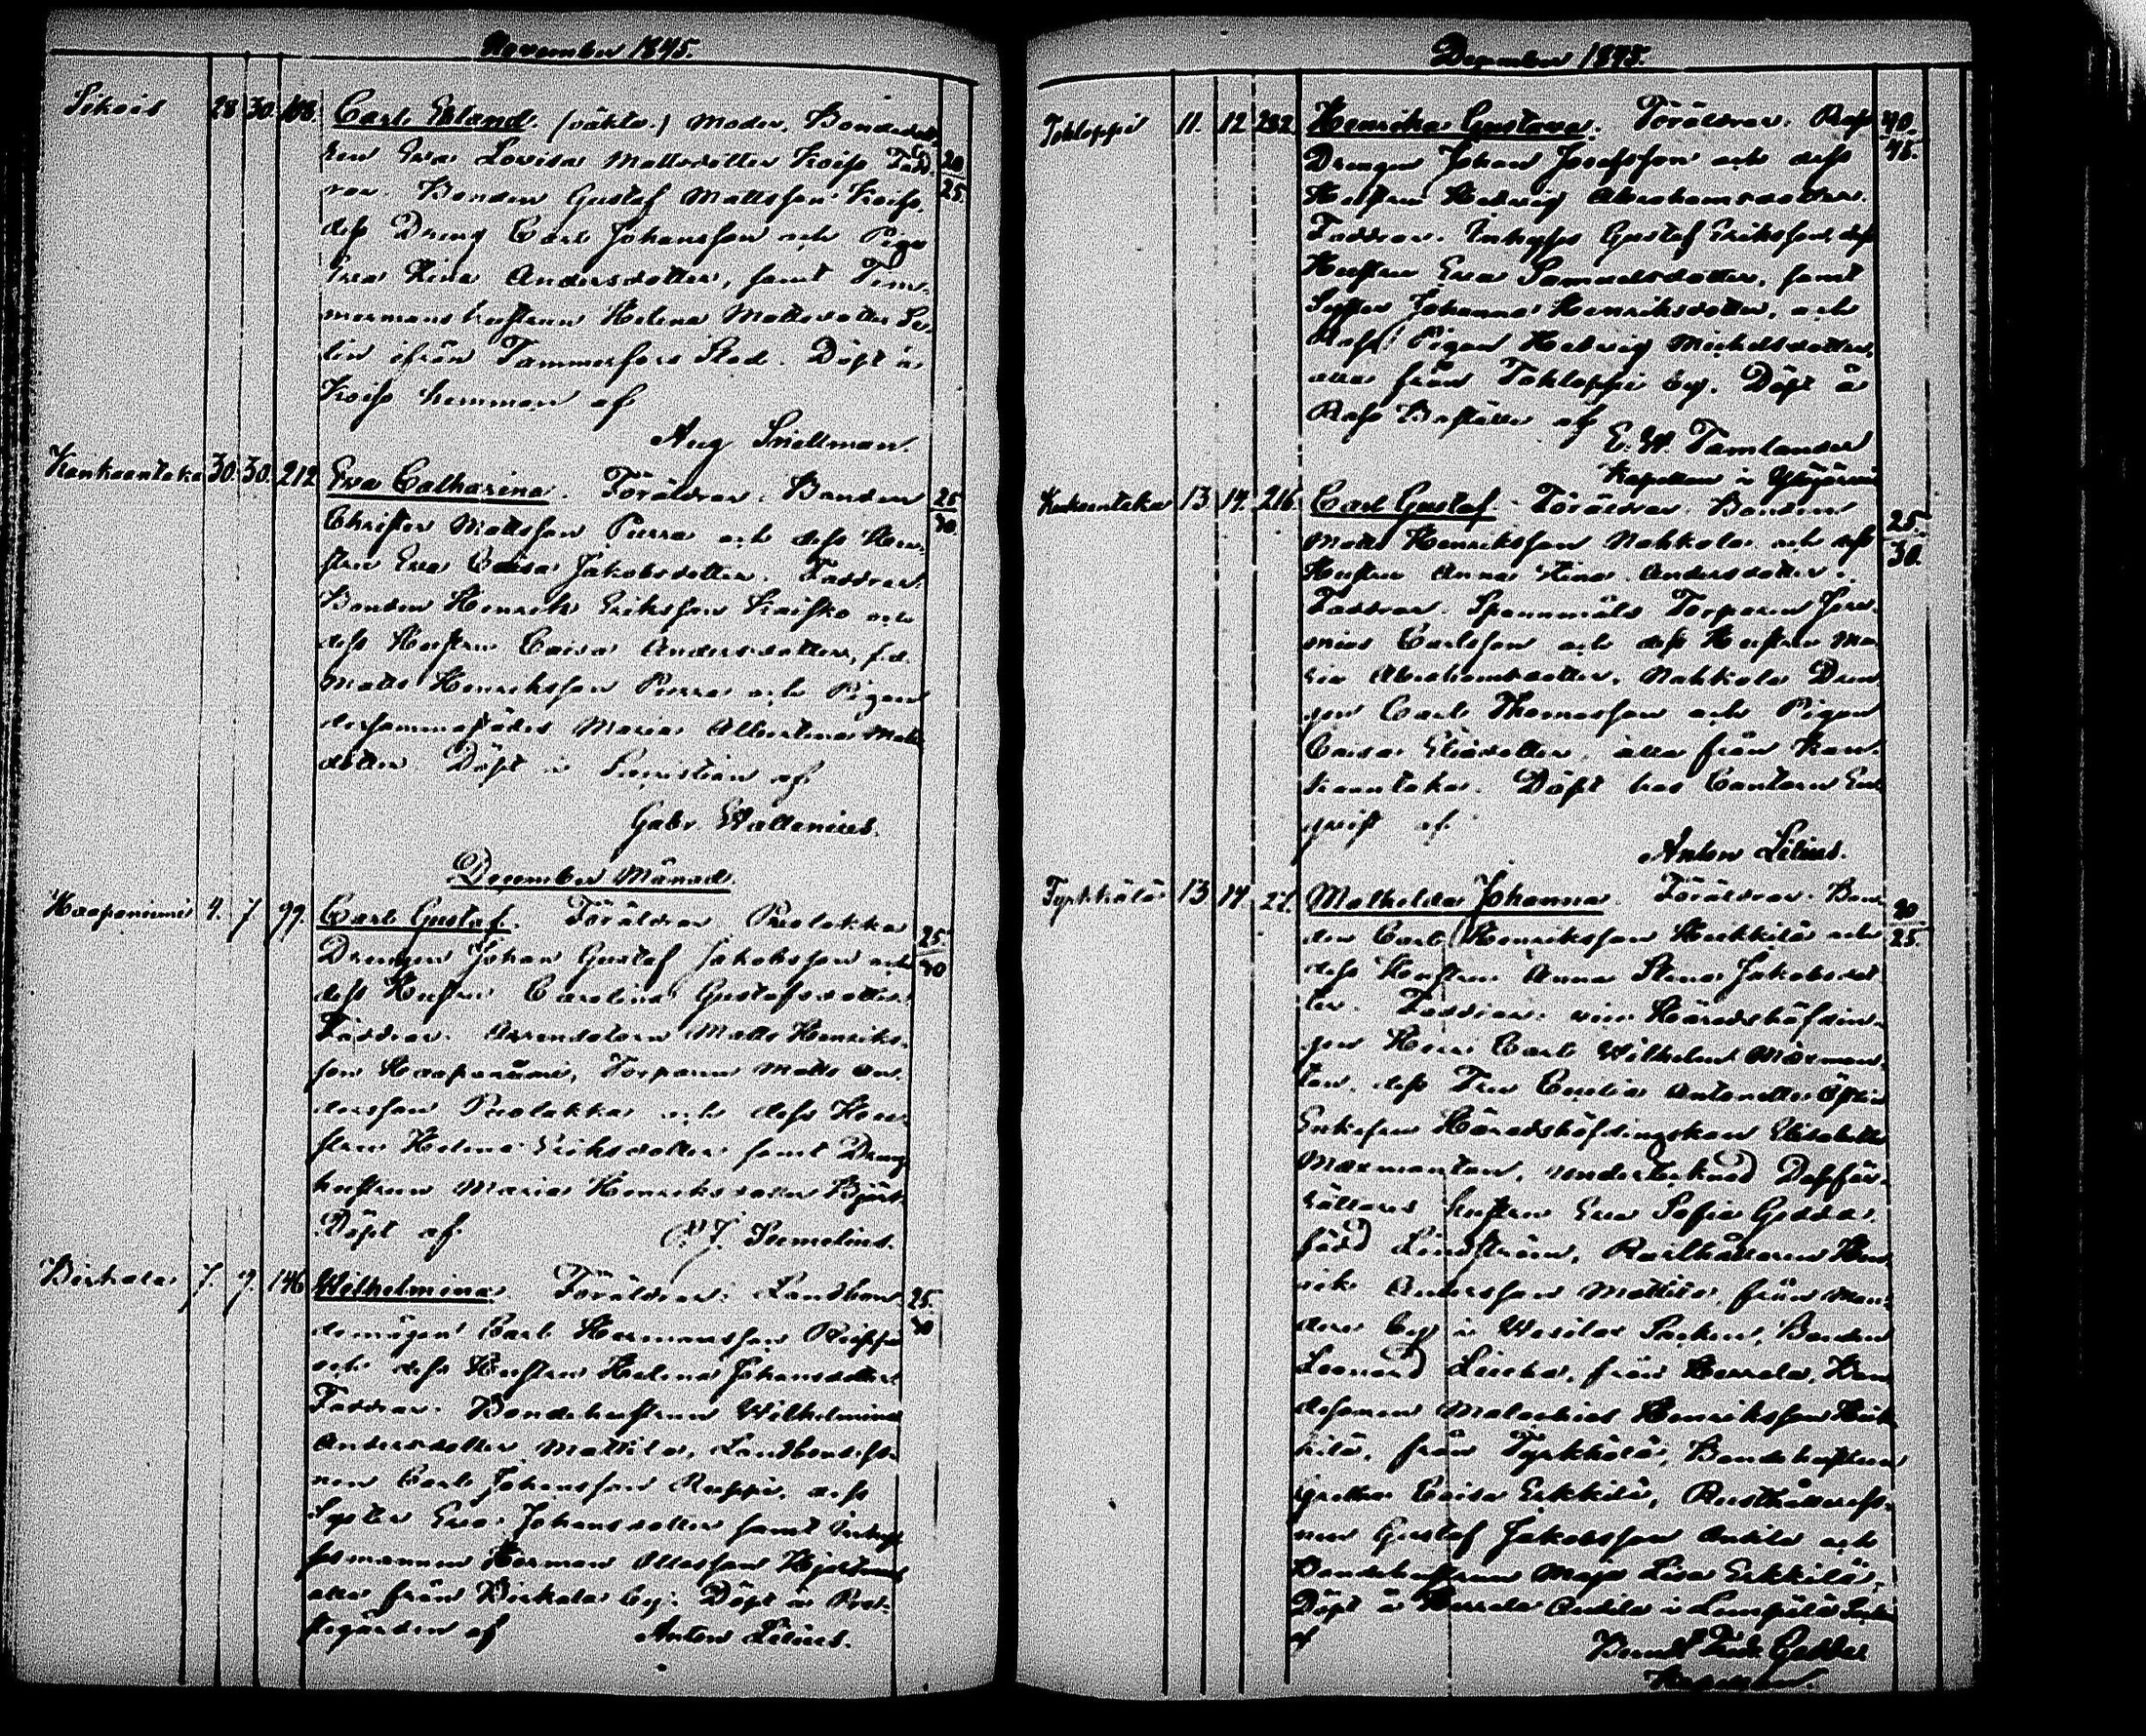 November 1845.
Sikois 28 30. 108. Carl Ekland. (oäkta.) Moder, Bondedott
ren Eva Lovisa Mattsdotter Koiso, Fadd 20
rar. Bonden Gustaf Mattsson Koiso, 25.
dess Dreng Carl Johansson och Piga
Eva Stina Andersdotter, samt Tim-
mermans hustrun Helena Mattsdotter
lin ifrån Tammerfors Stad. Döpt å
Koiso hemman af
Aug Snellman.
Kankaantaka 30. 30. 212 Eva Catharina. Föräldrar, Bonden 25
Christer Mattsson Purra och dess Hu- 30.
stru Eva Caisa Jakobsdotter. Faddrar.
Bonden Henrik Eriksson och
dess Hustru Caisa Andersdotter, f.d.
Matts Henriksson Purra och Pigan
dersammastädes Maria Albertina Matts
dotter. Döpt i Sacristian af
Gabr. Wallenius.
December Månad.
Haapaniemi 4. 7 99. Carl Gustaf. Föräldrar Puolakka 25.
Drengen Johan Gustaf Jakobsson och 30
dess Hustru Carolina Gustafsdotter.
Faddrar. Arrendatorn Matts Henriks-
son Haapaniemi, Torparen Matts An-
dersson Puolakka och dess Hu-
stru Helena Eriksdotter samt Dreng
hustrun Maria Henriksdotter
Döpt af Sumelius.
Birkala 7. 9. 146 Wilhelmina. Föräldrar: Landbon- 25.
demågen Carl Hermansson 30
och dess Hustru Helena Johansdotter
Faddrar. Bondehustrun Wilhelmina
Andersdotter Mattila, Landbondeso-
nen Carl Johansson dess
Syster Eva Johansdotter samt
Herman
alla från Birkala by. Döpt i Pre-
stegården af Anton Lilius.
December 1845.
Tohloppi 11. 12 232. Henrika Gustava. Föräldrar. 40.
Drengen Johan Josefsson och dess 45.
Hustru Hedvig Abrahamsdotter.
Faddrar. Inhyses Gustaf Eriksson, dess
Hustru Eva Samuelsdotter, samt
Syster Johanna Henriksdotter, och
Pigan Hedvig Michelsdotter,
alla från Tohloppi by. Döpt å
af
E. W. Tamlander
Kapellan i Ylöjärvi
Kankaantaka 13 14. 216. Carl Gustaf. Föräldrar. Bonden 25.
Matts Henriksson Nahkola och dess 30.
Hustru Anna Stina Andersdotter.
Faddrar. Spannmåls Torparen Jere-
mias Carlsson och dess Hustru Ma
ria Abrahamsdotter, Nahkola Dren
gen Carl Thomasson och Pigan
Caisa Eliasdotter, alla från Kan-
kaantaka. Döpt hos Cantorn
af
Anton Lilius.
Tyrkkälä 13 14. 27. Mathilda Johanna. Föräldrar. Bon- 20
den Carl Henriksson Heikkilä och 25.
dess Hustru Anna Stina Jakobsdot
ter. Faddrar. vice Häradshöfdin-
gen Herr Carl Wilhelm Maxmon-
tan, dess Fru Cecilia Antonetta
Enkefru Häradshöfdingskan Elisabeth
Maxmontan, undertecknad Dopför-
rättares hustru Eva Sofia Gadda,
född Lindström, Rusthållaren Hen
rik Andersson Mattila, från
by i Wesilax Socken, Bonden
Leonard från Herrala,
Malachias Henriksson Heik
kilä, från Tyrkkölä, Bondehustrun
Greta Caisa Erkkilä, Rusthållareso-
nen Gustaf Jakobsson Anttila och
Bondehustrun Maja Lisa Erkkilä.
Döpt å Herrala Anttila i Lempälä Socken
af Gadda